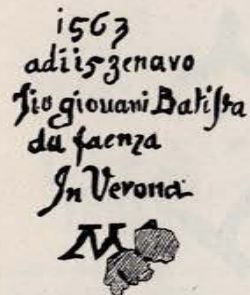 1563
adii 15 zenaro
Jio giouani Batista
da faenza
In Verona
M